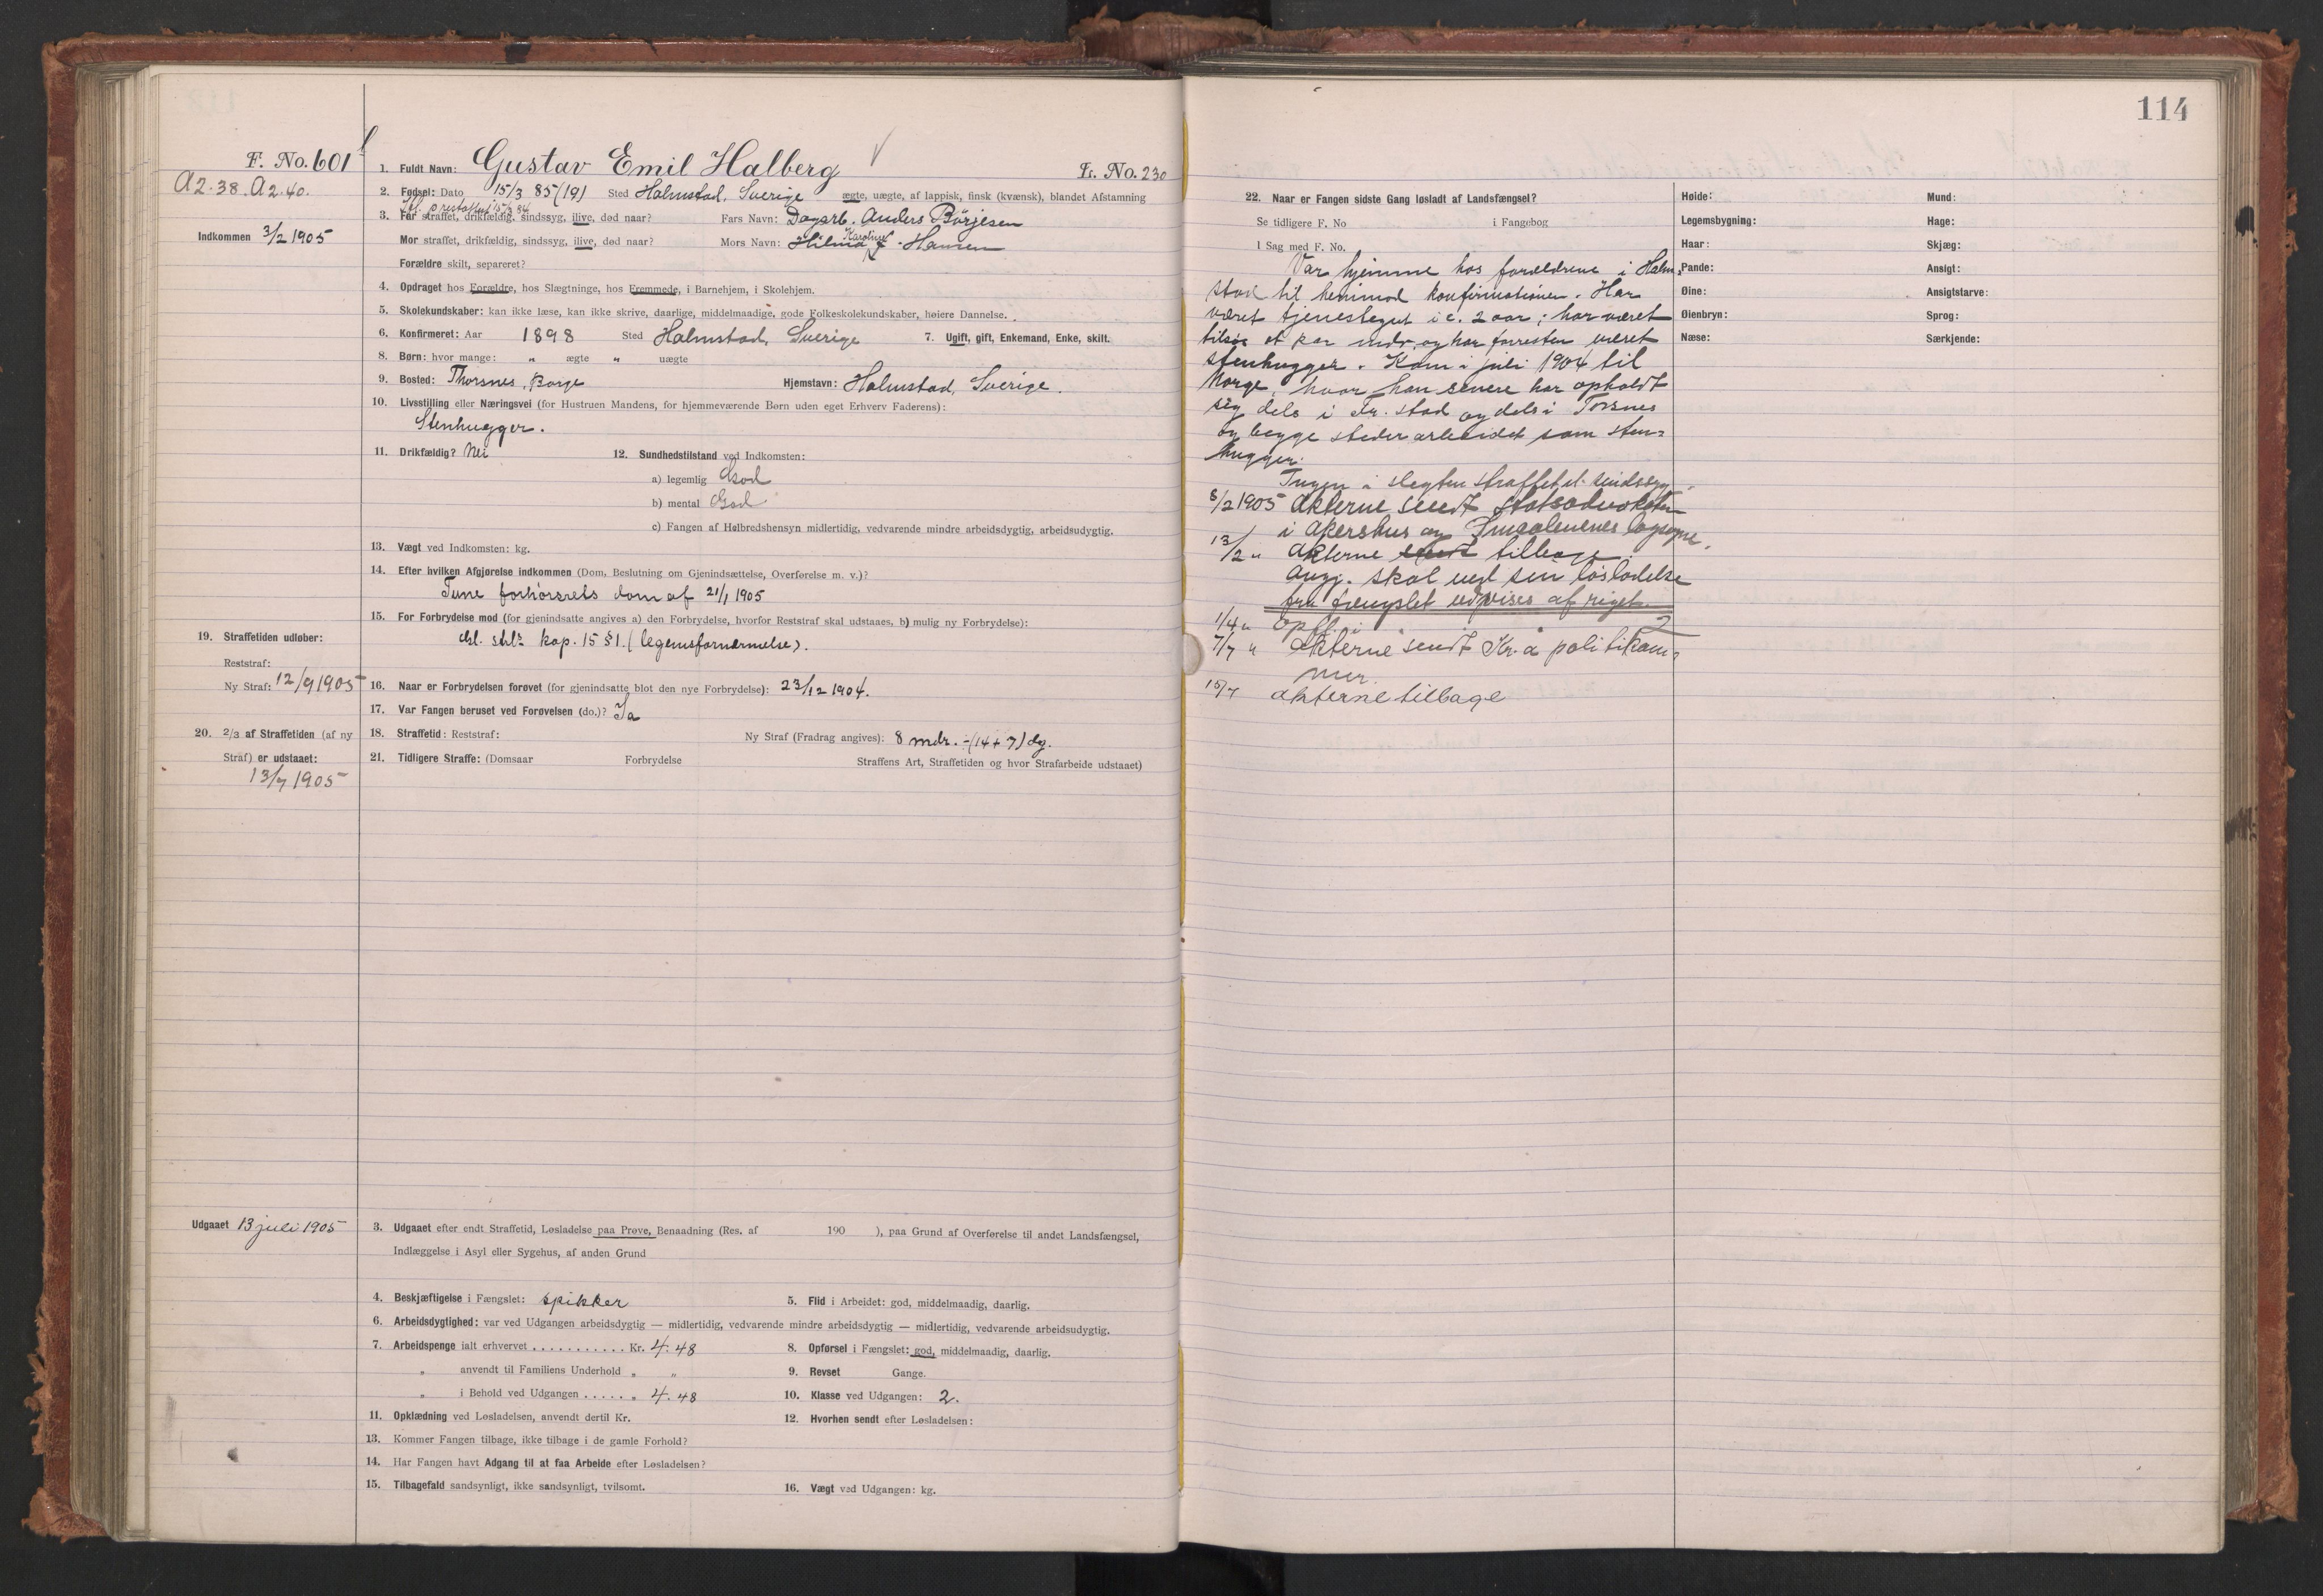 114
F. No. 601
A 2. 38. A 2. 40.
Indkommen 3/2 1905
1. Fuldt Navn: Gustav Emil Halberg Fr. No. 230
2. Fødsel: Dato 15/3 85 (19) Sted Halmstad, Sverige ægte, uægte, af lappisk, finsk (kvænsk), blandet Afstamning
15/3 84
3. Far straffet, drikfældig, sindssyg, ilive, død naar? Fars Navn: Dagarb. Anders Börjesen
Mor straffet, drikfældig, sindssyg, ilive, død naar? Mors Navn: Hilma Karoline f. Hansen
Forældre skilt, separeret?
4. Opdraget hos Forældre, hos Slægtninge, hos Fremmede, i Barnehjem, i Skolehjem.
5. Skolekundskaber: kan ikke læse, kan ikke skrive, daarlige, middelmaadige, gode Folkeskolekundskaber, høiere Dannelse.
6. Konfirmeret: Aar 1898 Sted Halmstad, Sverige 7. Ugift, gift, Enkemand, Enke, skilt.
8. Børn: hvor mange: „ ægte „ uægte
9. Bosted: Thorsnes, Borge Hjemstavn: Halmstad, Sverige.
10. Livsstilling eller Næringsvei (for Hustruen Mandens, for hjemmeværende Børn uden eget Erhverv Faderens):
Stenhugger.
11. Drikfældig? Nei 12. Sundhedstilstand ved Indkomsten:
a) legemlig God
b) mental God
c) Fangen af Helbredshensyn midlertidig, vedvarende mindre arbeidsdygtig, arbeidsudygtig.
13. Vægt ved Indkomsten: kg.
14. Efter hvilken Afgjørelse indkommen (Dom, Beslutning om Gjenindsættelse, Overførelse m. v.)?
Tune forhørsrets dom af 21/1 1905
15. For Forbrydelse mod (for gjenindsatte angives a) den Forbrydelse, hvorfor Reststraf skal udstaaes, b) mulig ny Forbrydelse):
kap. 15 § 1. (legemsfornærmelse).
19. Straffetiden udløber:
Reststraf:
Ny Straf: 12/9 1905
16. Naar er Forbrydelsen forøvet (for gjenindsatte blot den nye Forbrydelse): 23/12 1904.
17. Var Fangen beruset ved Forøvelsen (do.)? Ja
20. 2/3 af Straffetiden (af ny Straf) er udstaaet:
13/7 1905
18. Straffetid: Reststraf: Ny Straf (Fradrag angives): 8 mdr. ÷ (14 + 7) dg.
21. Tidligere Straffe: (Domsaar Forbrydelse Straffens Art, Straffetiden og hvor Strafarbeide udstaaet)
Udgaaet 13 juli 1905
3. Udgaaet efter endt Straffetid, Løsladelse paa Prøve, Benaadning (Res. af 190 ), paa Grund af Overførelse til andet Landsfængsel,
Indlæggelse i Asyl eller Sygehus, af anden Grund
4. Beskjæftigelse i Fængslet: spikker 5. Flid i Arbeidet: god, middelmaadig, daarlig.
6. Arbeidsdygtighed: var ved Udgangen arbeidsdygtig — midlertidig, vedvarende mindre arbeidsdygtig — midlertidig, vedvarende arbeidsudygtig.
7. Arbeidspenge ialt erhvervet ........... Kr. 4.48 8. Opførsel i Fængslet: god, middelmaadig, daarlig.
„ anvendt til Familiens Underhold „ „ 9. Revset Gange.
„ i Behold ved Udgangen ..... „ 4.48 10. Klasse ved Udgangen: 2.
11. Opklædning ved Løsladelsen, anvendt dertil Kr. 12. Hvorhen sendt efter Løsladelsen:
13. Kommer Fangen tilbage, ikke tilbage i de gamle Forhold?
14. Har Fangen havt Adgang til at faa Arbeide efter Løsladelsen?
15. Tilbagefald sandsynligt, ikke sandsynligt, tvilsomt. 16. Vægt ved Udgangen: kg.
22. Naar er Fangen sidste Gang løsladt af Landsfængsel?
Se tidligere F. No i Fangebog
I Sag med F. No.
Var hjemme hos forældrene i Halm=
stad til henimod konfirmationen. Har
været tjenestegut i c. 2 aar; har været
tilsjøs et par mdr. og har forresten været
stenhugger. Kom i juli 1904 til
Norge, hvor han senere har opholdt
sig dels i Fr.stad og dels i Torsnes
og begge steder arbeidet som sten=
hugger.
Ingen i slegten straffet el. sindssyg.
8/2 1905 Akterne sendt statsadvokaten
i Akershus og Smaalenenes lagsogn.
13/2 „ Akterne tilbage.
Angj. skal ved sin løsladelse
fra fængslet udvises af riget.
1/4 „ Opfl. i 2
7/7 „ Akterne sendt Kr.a politikam=
mer.
15/7 akterne tilbage
Høide: Mund:
Legemsbygning: Hage:
Haar: Skjæg:
Pande: Ansigt:
Øine: Ansigtsfarve:
Øienbryn: Sprog:
Næse: Særkjende: